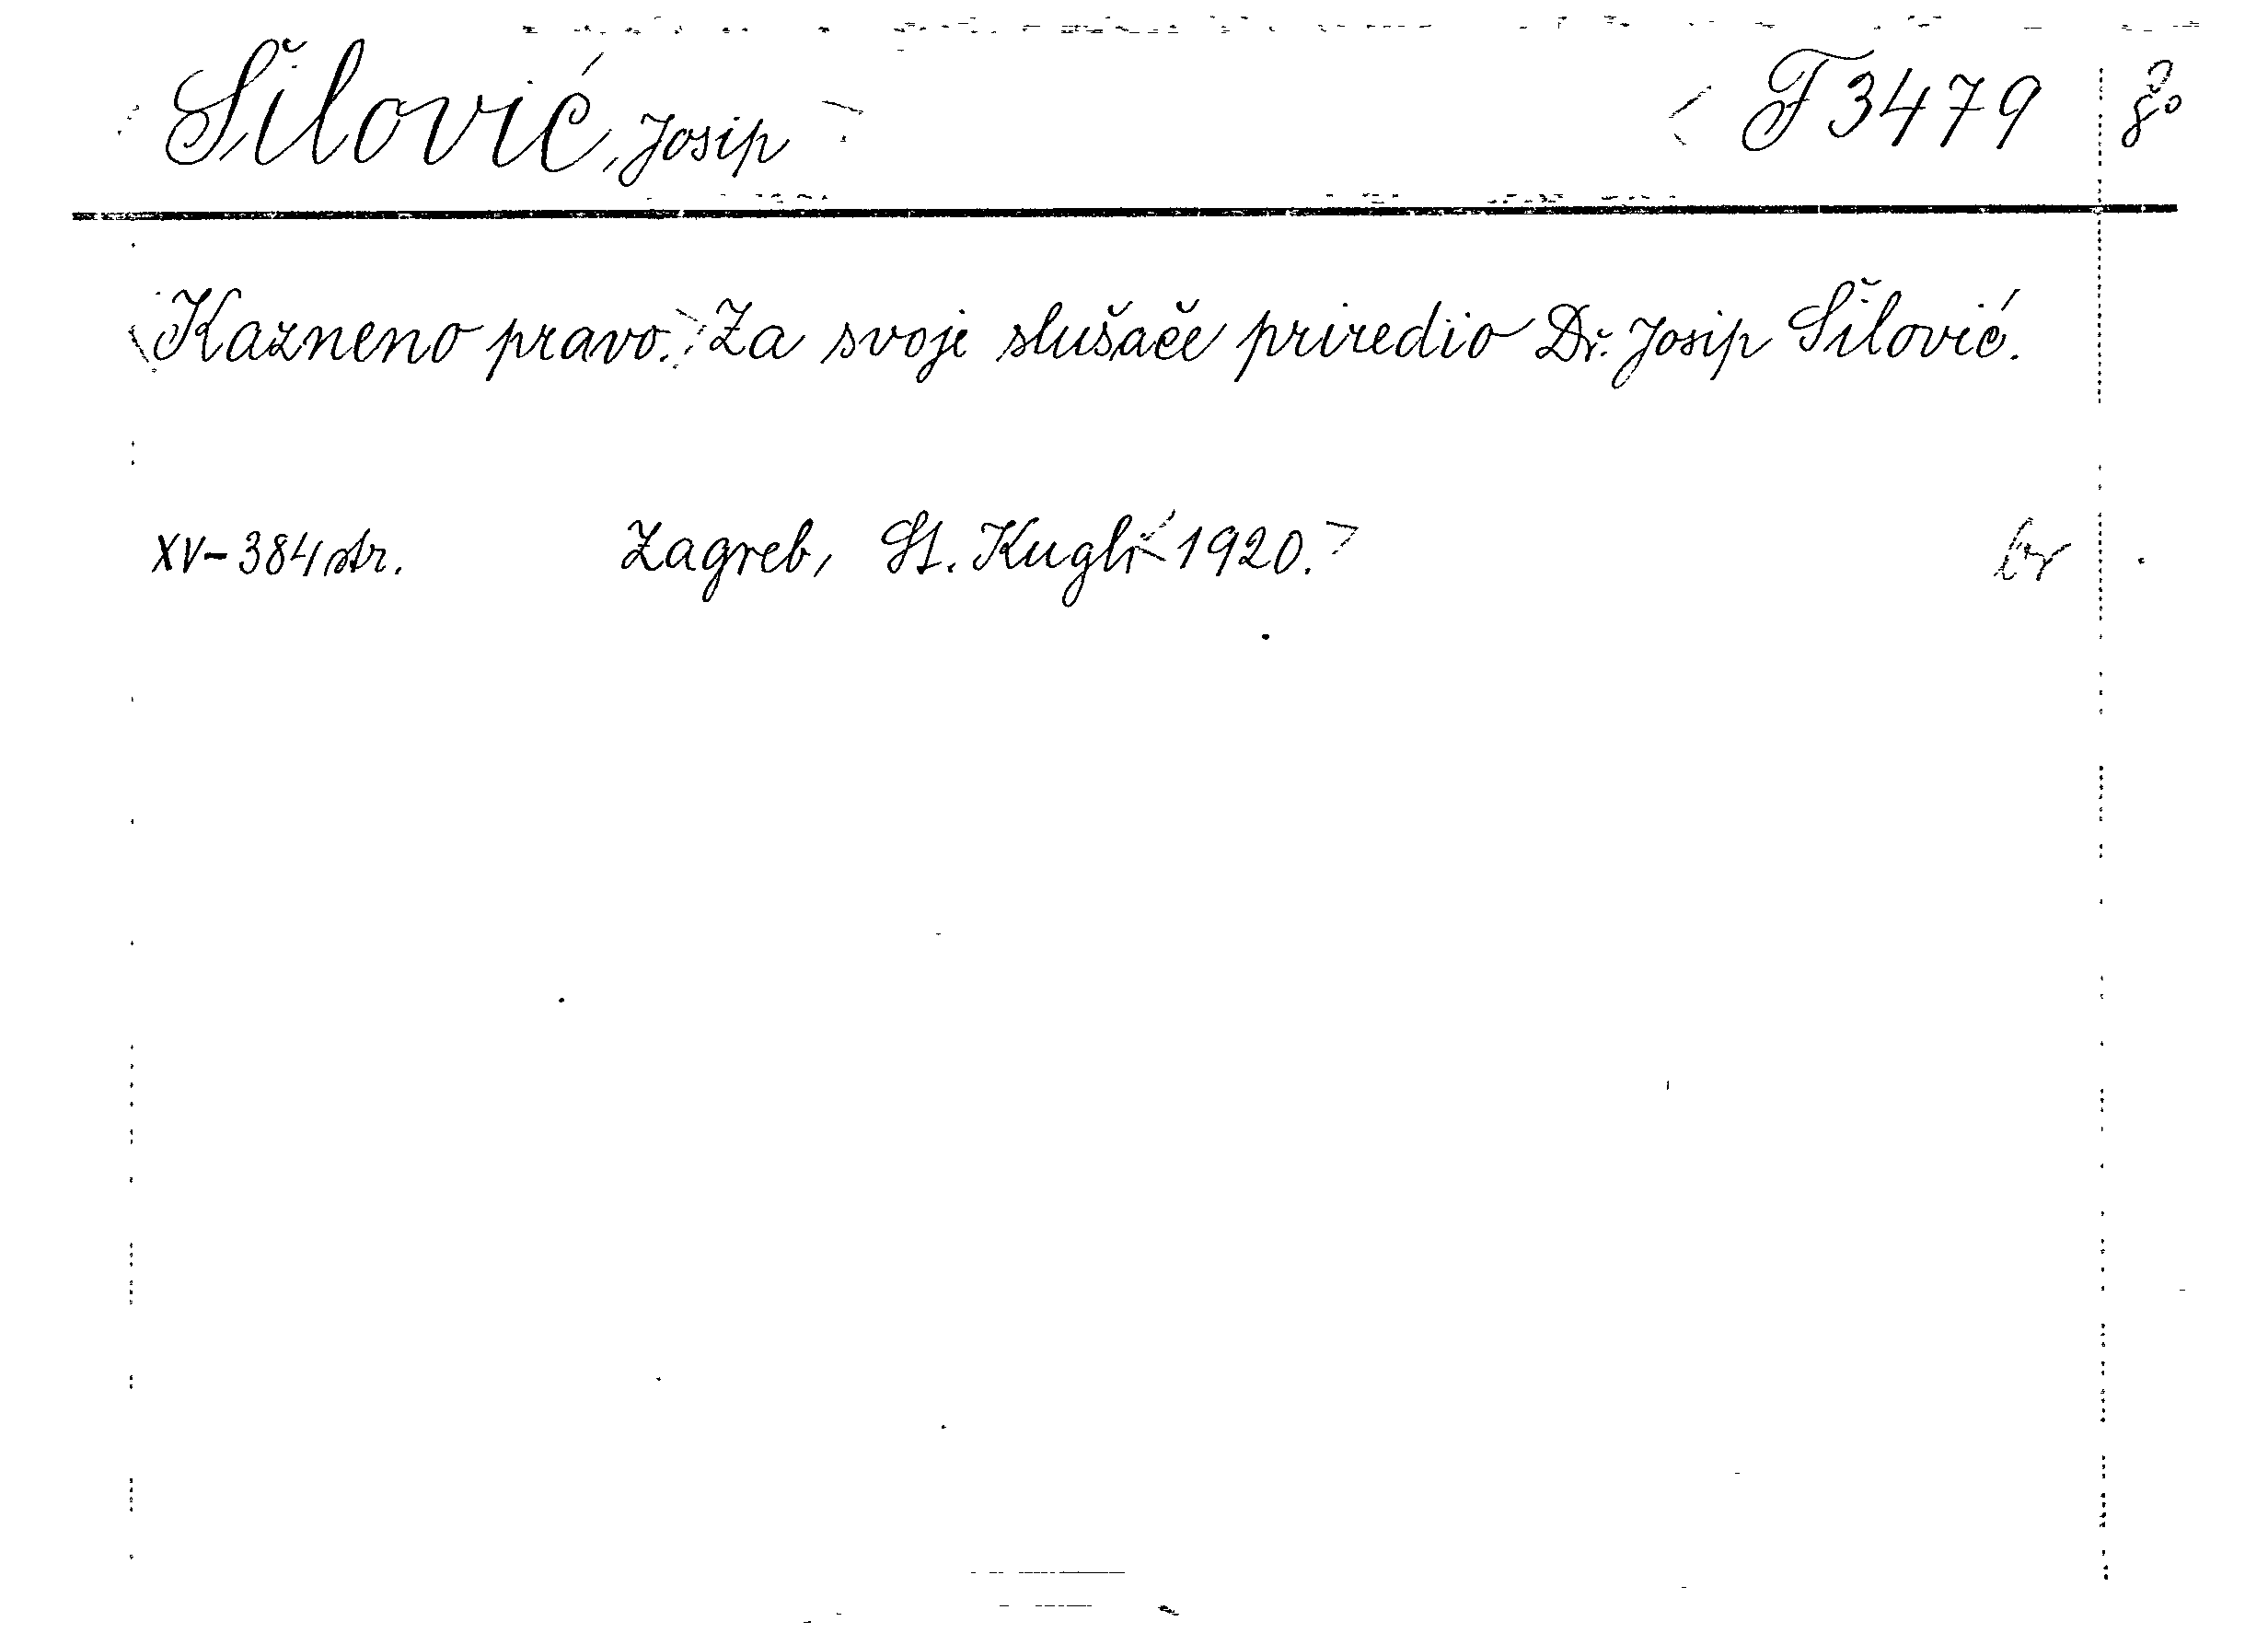 Šilović, Josip F 3479 8°
Kazneno pravo. Za svoje slušače priredio Dr. Josip Šilović.
XV-384 str. Zagreb, St. Kugli 1920.